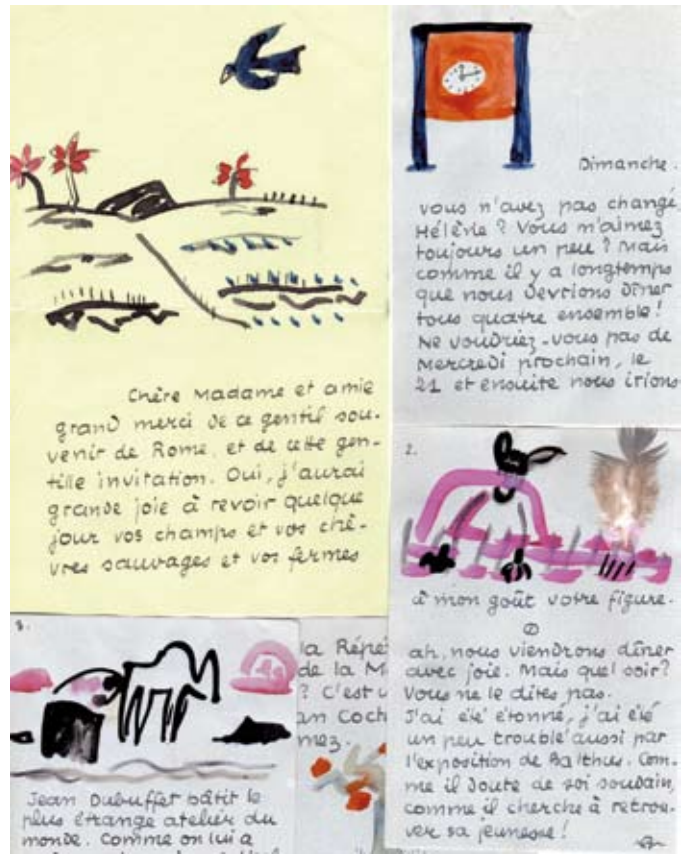 Chère Madame et amie
grand merci de ce gentil sou-
venir de Rome, et de cette gen-
tille invitation. Oui, j'aurai
grande joie à revoir quelque
jour vos champs et vos chê-
vres sauvages et vos fermes
Dimanche.
vous n'avez pas changé,
Hélène ? Vous m'aimez
toujours un peu ? Mais
comme il y a longtemps
que nous devrions dîner
tous quatre ensemble !
Ne voudriez-vous pas de
Mercredi prochain, le
21 et ensuite nous irions
2.
à mon goût votre figure.
ah, nous viendrons dîner
avec joie. Mais quel soir?
Vous ne le dites pas.
J'ai été étonné, j'ai été
un peu troublé aussi par
l'exposition de Balthus. Com-
me il doute de soi soudain,
comme il cherche à retrou-
ver sa jeunesse !
3.
Jean Dubuffet bâtit le
plus étrange atelier du
monde. Comme on lui a
la Répé
de la M
? C'est u
an Coch
mez.